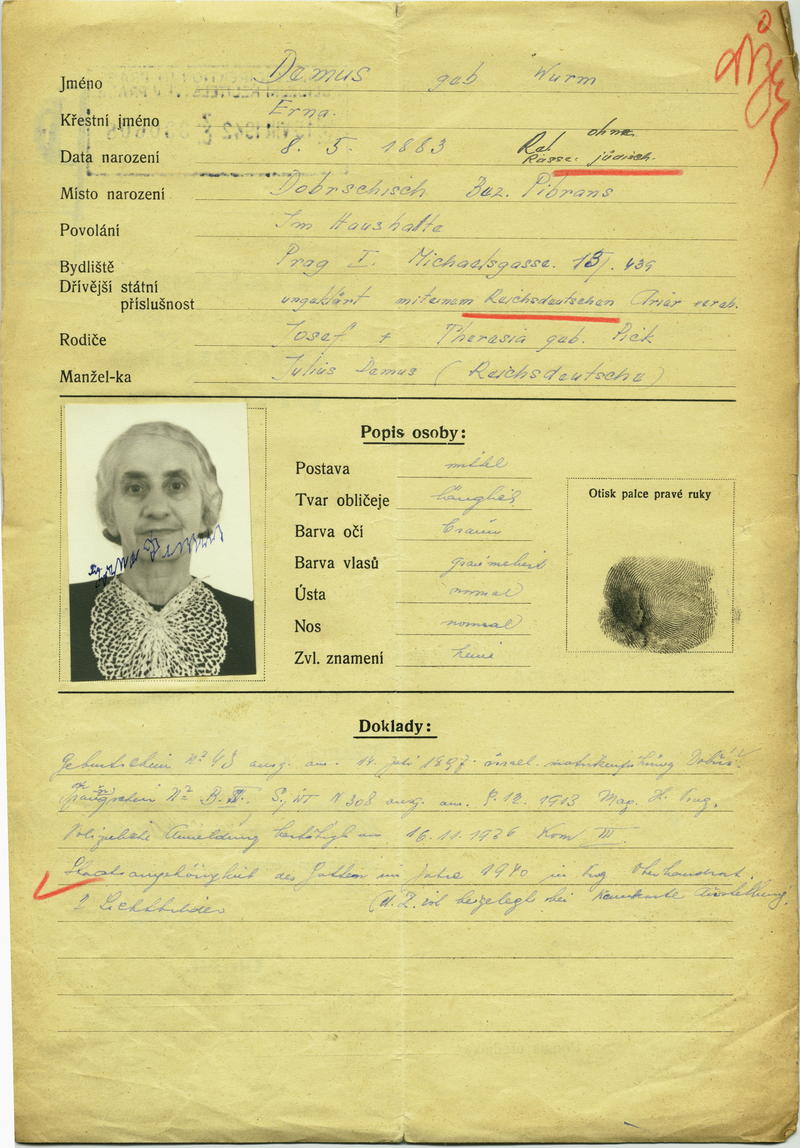 Jméno Demus geb Wurm
Křestní jméno Erna.
Data narození 8. 5. 1883 Rel. ohne
Rasse: jüdisch.
Místo narození Dobrschisch Bez. Pibrans
Povolání Im Haushalte
Bydliště Prag I. Michaelsgasse. 13/. 439
Dřívější státní
příslušnost ungeklärt mit einem Reichsdeutschen Arier vereh.
Rodiče Josef + Therasia geb. Pick
Manžel-ka Julius Demus (Reichsdeutscher)
Popis osoby:
Postava mittel
Tvar obličeje länglich
Barva očí braun
Barva vlasů graumeliert
Ústa normal
Nos normal
Zvl. znamení keine
Otisk palce pravé ruky
Erna Demus
Doklady:
Geburtschein N° 48 ausg. am. 14. Juli 1897. israel. Matrikenführung Dobříš.
N° B. II. S. WT N 308 ausg. am. 9. 12. 1913 Mag. H. Prag.
Polizeiliche Anmeldung bestätigt am 16. 11. 1936 Kom III
Staatsangehörigkeit des Gatten im Jahre 1940 in Prag Oberlandrat.
2 Lichtbilder beigelegt bei Kennkarte Ausstellung.